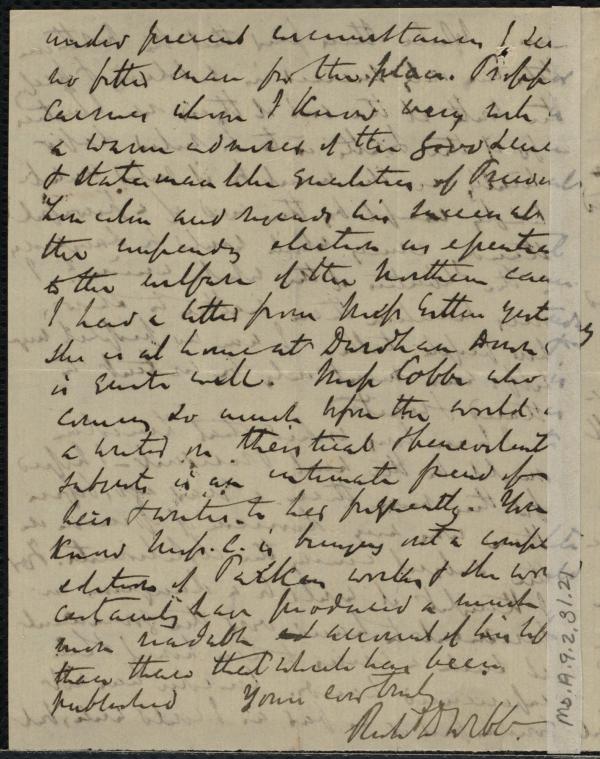 under present circumstances I see
no fitter man for the place. Proff
Cairnes whom I know very well
a warm admirer of the good sense
& statesmanlike qualities of Presi
Lincoln and regards his success at
the impending election as essentia
to the welfare of the Northern cau
I had a letter from Miss Estlin yest
she is at home at Durdham Down &
is quite well. Miss Cobbe who
coming so much upon the world
a writer on theistical & benevolent
subjects is an intimate friend of
hers & writes to her frequently. You
know Miss. C. is bringing out a comple
edition of Parkers works & she wou
certainly have produced a much
more readable account of his life
than that which has been
published Yours cordially
Richd D Webb.
Ms.A.9.2.31.21